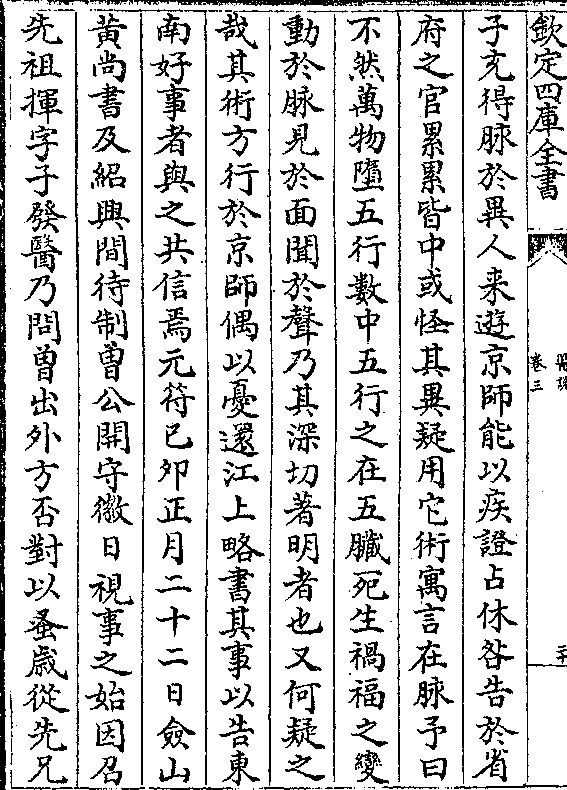 欽定四庫全書
卷三
子充得脉於異人来遊京師能以疾證占休咎告於省
府之官累累皆中或怪其異疑用它術寓言在脉予曰
不然萬物墮五行數中五行之在五臟死生禍福之變
動於脉見於面聞於聲乃其深切著明者也又何疑之
哉其術方行於京師偶以憂還江上略書其事以告東
南好事者與之共信焉元符已夘正月二十二日僉山
黃尚書及紹興間待制曽公開守徽日視事之始因召
先祖揮字子發醫乃問曽出外方否對以蚤歲從先兄